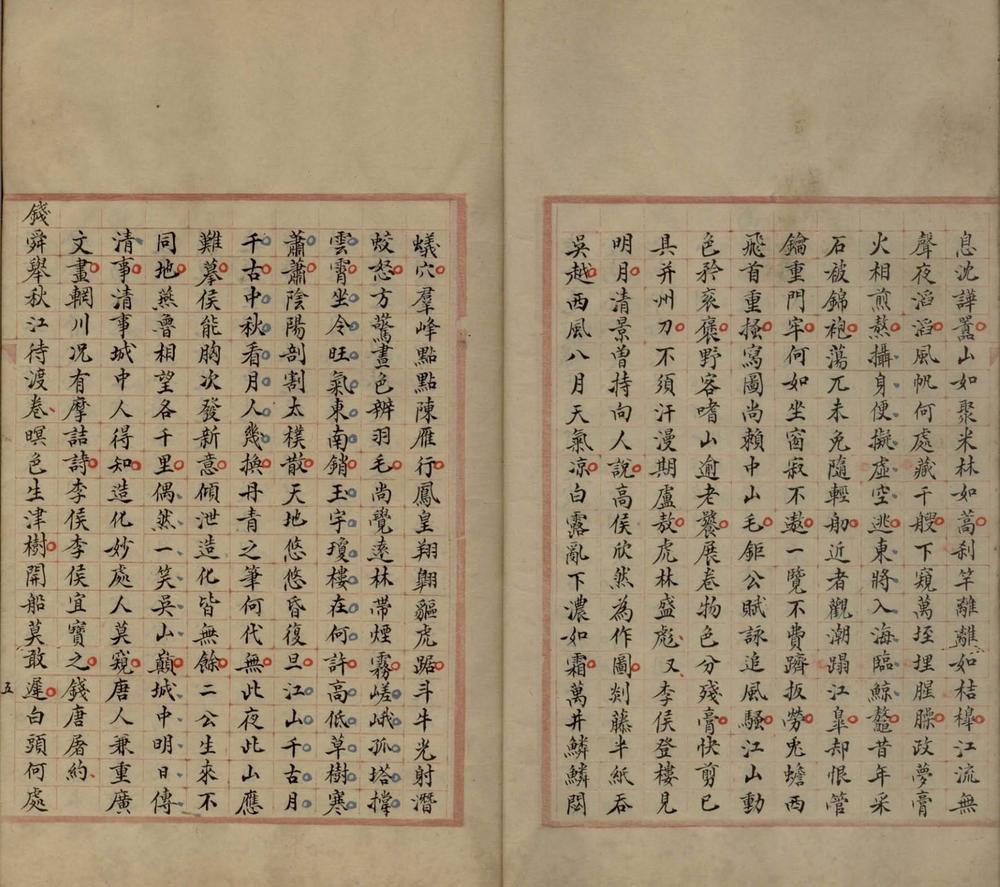 息沈譁囂山如聚米林如蒿刹竿離離如桔槔江流無
聲夜滔滔風帆何處藏千艘下窺萬垤埋腥臊政夢膏
火相煎熬攝身便擬虛空逃東將入海臨鯨鼇昔年采
石被錦袍蕩兀未免隨輕舠近者觀潮蹋江皐却恨管
鑰重門牢何如坐窗寂不遨一覽不費躋扳勞兎蟾西
飛首重搔寫圖尚賴中山毛鉅公賦詠追風騷江山動
色矜衮褒野客嗜山逾老饕展卷物色分殘膏快剪已
具并州刀不須汗漫期盧敖虎林盛彪又李侯登樓見
明月清景曾持向人說高侯欣然為作圖剡藤半紙吞
吳越西風八月天氣凉白露亂下濃如霜萬井鱗鱗閟
蟻穴羣峰點點陳雁行鳳皇翔翺貙虎踞斗牛光射潛
蛟怒方驚晝色辨羽毛尚覺遠林帶煙霧嵯峨孤塔撑
雲霄坐令旺氣東南銷玉宇瓊樓在何許高低草樹寒
蕭蕭陰陽剖割太樸散天地悠悠昏復旦江山千古月
千古中秋看月人幾換丹青之筆何代無此夜此山應
難摹侯能胸次發新意傾泄造化皆無餘二公生來不
同地燕魯相望各千里偶然一笑吳山巔城中明日傳
清事清事城中人得知造化妙處人莫窺唐人兼重廣
文畫輞川况有摩詰詩李侯李侯宜寶之錢唐屠約
錢舜舉秋江待渡卷暝色生津樹開船莫敢遲白頭何處
五